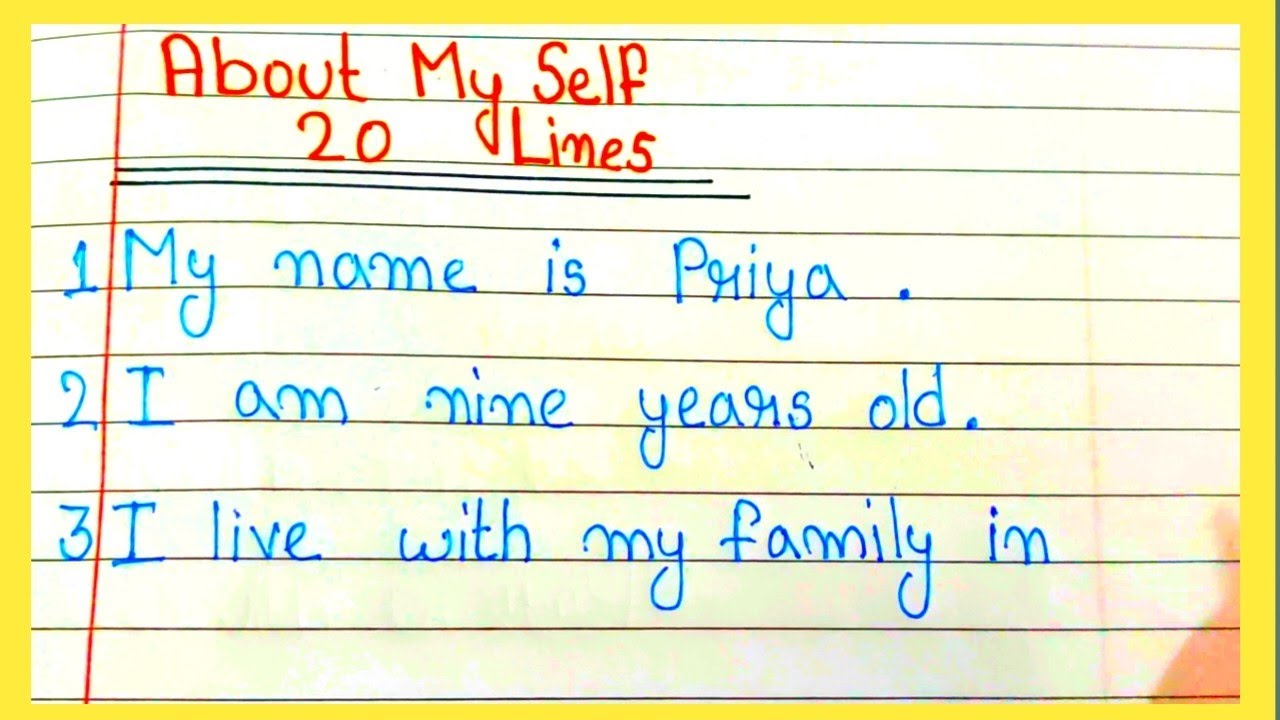 About My Self
20 Lines
1 My name is Priya .
2 I am nine years old.
3 I live with my family in